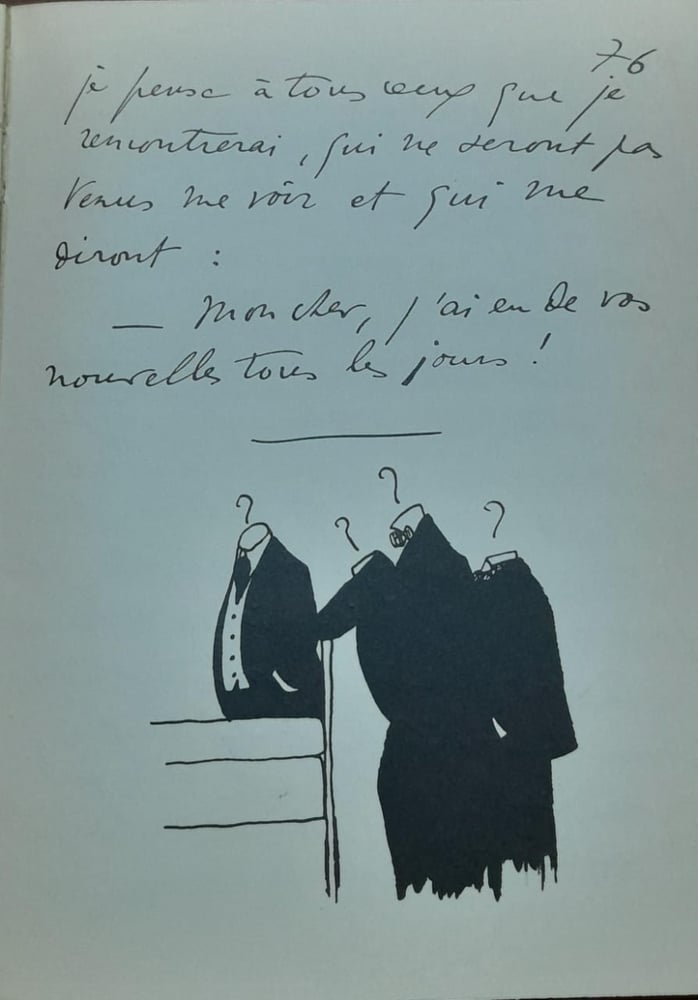 76
je pense à tous ceux que je
rencontrerai, qui ne seront pas
venus me voir et qui me
diront :
— Mon cher, j'ai eu de vos
nouvelles tous les jours !
? ? ? ?